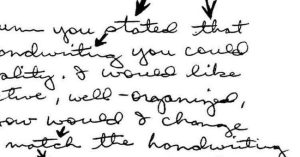 you stated that
handwriting you could
. I would like
, well-organized,
how would I change
match the handwriting